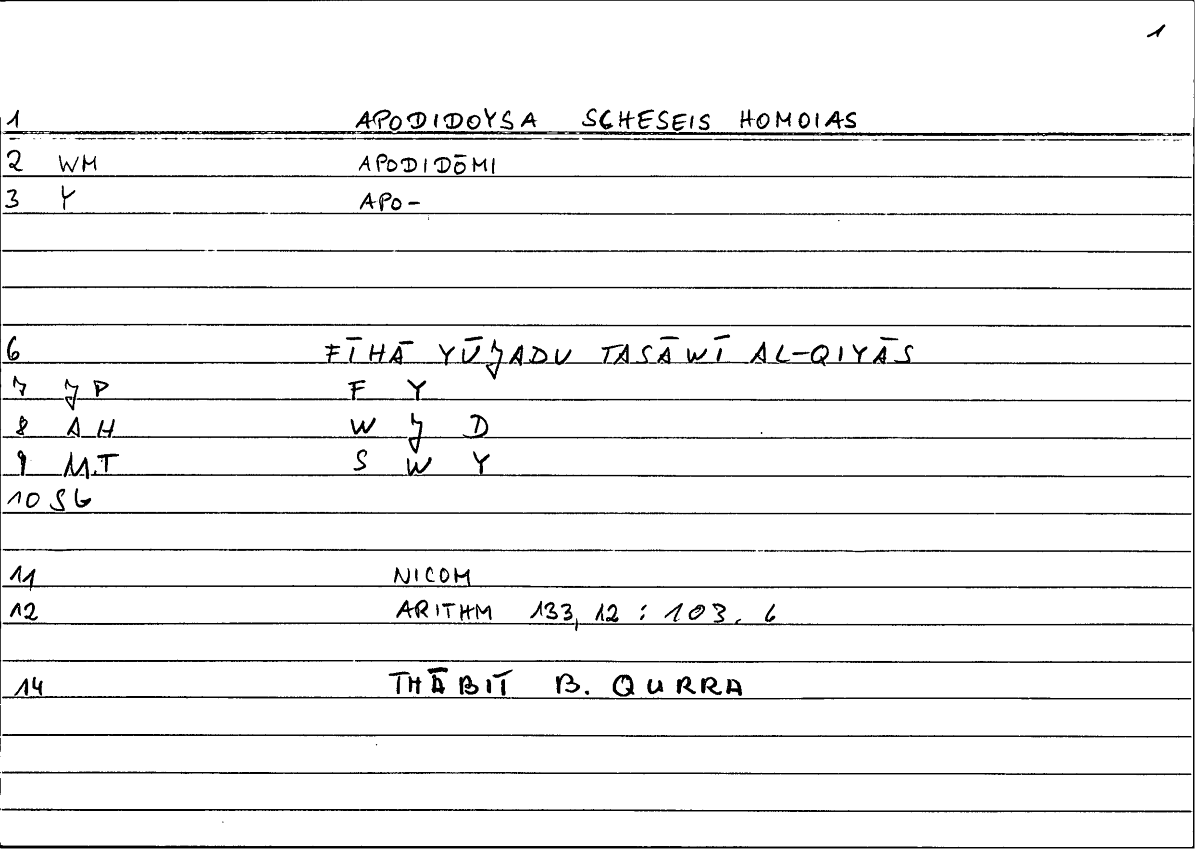 1
1 APODIDOYSA SCHESEIS HOMOIAS
2 WM APODIDŌMI
3 Y APO-
6 FĪHĀ YŪJADU TASĀWĪ AL-QIYĀS
7 JP F Y
8 AH W J D
9 M.T S W Y
10 SG
11 NICOM
12 ARITHM 133,12 : 103.6
14 THĀBIT B. QURRA